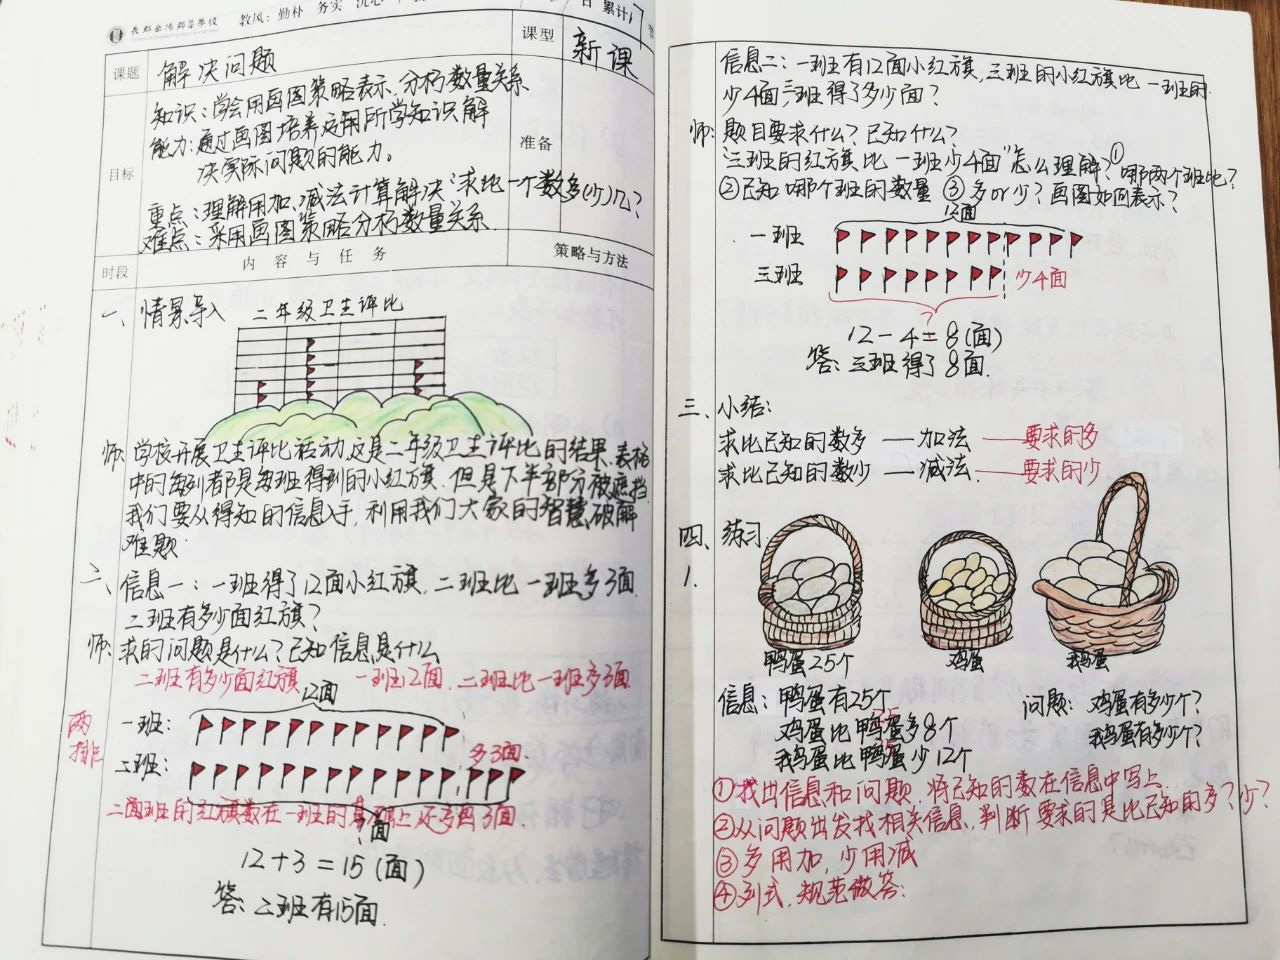 教风：勤朴 务实
累计
课题
解决问题
课型
新课
目标
知识：学会用画图策略表示、分析数量关系
能力：通过画图培养运用所学知识解
决实际问题的能力。
重点：理解用加、减法计算解决"求比一个数多(少)几？
难点：采用画图策略分析数量关系
准备
时段
内容与任务
策略与方法
一、情景导入
二年级卫生评比
师：学校开展卫生评比活动，这是二年级卫生评比的结果，表格
中的每列都是每班得到的小红旗，但是下半部分被遮挡
我们要从得知的信息入手，利用我们大家的智慧破解
难题.
二、信息一：一班得了12面小红旗，二班比一班多3面.
二班有多少面红旗？
师：求的问题是什么？已知信息是什么
二班有多少面红旗 一班12面，二班比一班多3面
12面
两排
一班：
多3面.
二班：
?面
12+3=15(面)
答：二班有15面.
信息二：一班有12面小红旗，三班的小红旗比一班的
少4面，三班得了多少面？
师：题目要求什么？已知什么？
"三班的红旗比一班少4面"怎么理解？①哪两个班比？
②已知哪个班的数量 ③多or少？画图如何表示？
12面
一班
三班
少4面
?
12-4=8(面)
答：三班得了8面.
三、小结：
求比已知的数多—加法—要求的多
求比已知的数少—减法—要求的少
四、练习.
1.
鸭蛋25个
鸡蛋
鹅蛋
信息：鸭蛋有25个
鸡蛋比鸭蛋多8个
鹅蛋比鸭蛋少12个
问题：鸡蛋有多少个？
鹅蛋有多少个？
①找出信息和问题，将已知的数在信息中写上
②从问题出发找相关信息，判断要求的是比已知的多？少？
③多用加，少用减
④列式，规范做答：